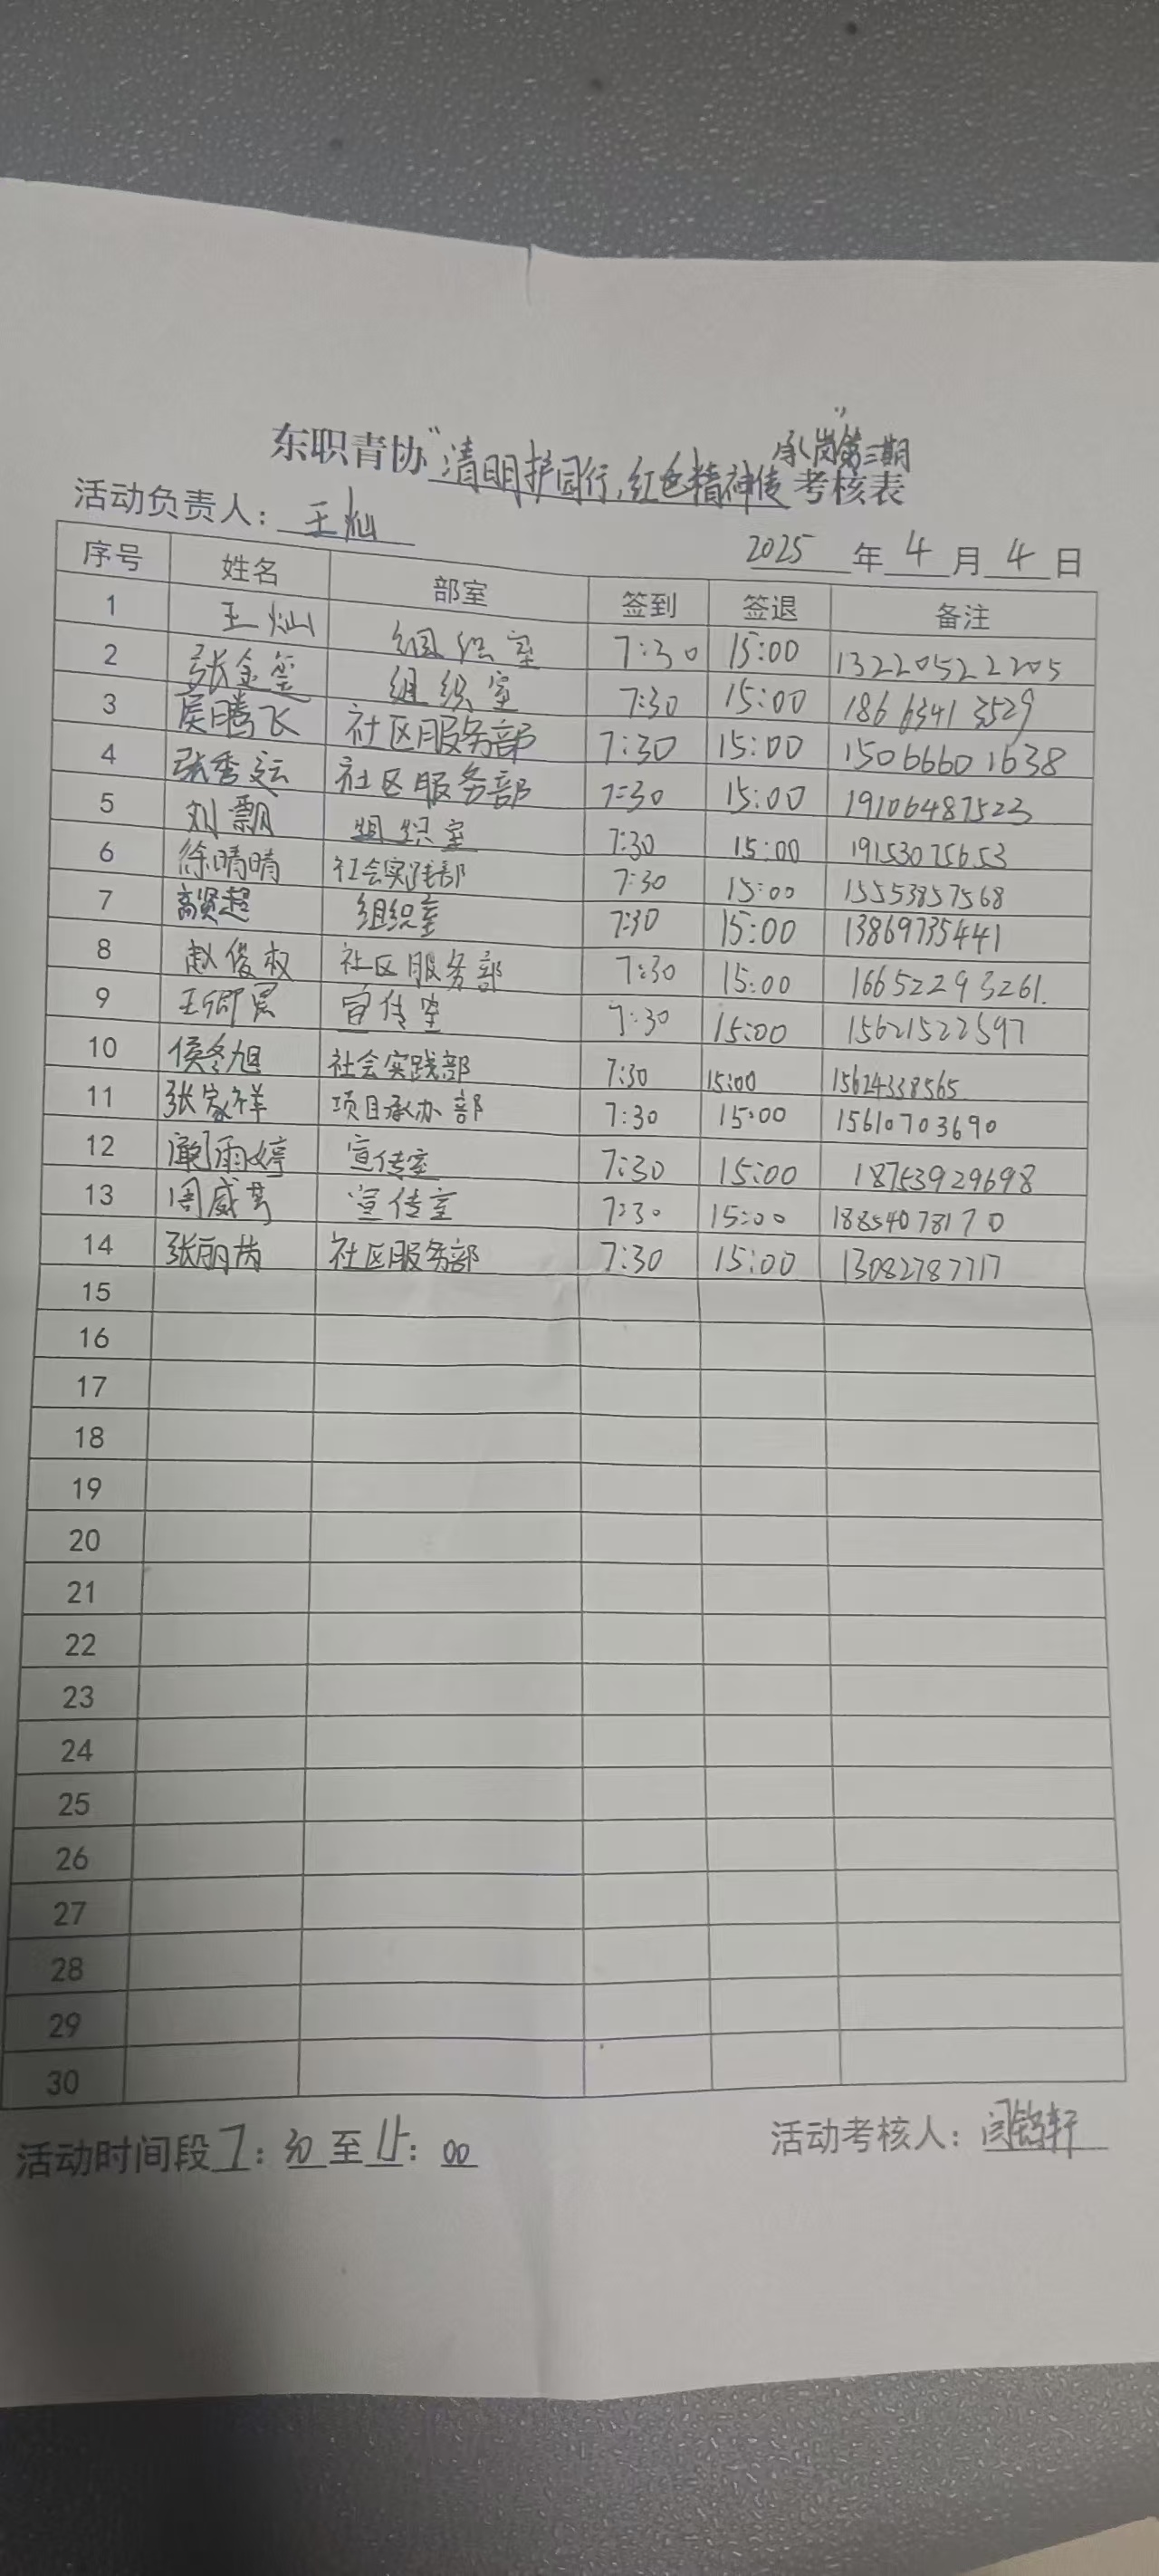 承岗第三期”
东职青协“清明护园行,红色精神传考核表
活动负责人: 王灿
2025 年 4 月 4 日
序号 姓名 部室 签到 签退 备注
1 王灿 组织室 7:30 15:00 13220522205
2 张金玺 组织室 7:30 15:00 18663413529
3 腾飞 社区服务部 7:30 15:00 15066601638
4 张秀运 社区服务部 7:30 15:00 19106487523
5 刘飘 组织室 7:30 15:00 19153075653
6 徐晴晴 社会实践部 7:30 15:00 15553857568
7 高贤超 组织室 7:30 15:00 13869735441
8 赵俊权 社区服务部 7:30 15:00 16652293261.
9 王卿 宣传室 7:30 15:00 15621522597
10 侯冬旭 社会实践部 7:30 15:00 15624338565
11 张家祥 项目承办部 7:30 15:00 15610703690
12 雨婷 宣传室 7:30 15:00 18753929698
13 周威 宣传室 7:30 15:00 18854078170
14 张丽 社区服务部 7:30 15:00 13082787717
15
16
17
18
19
20
21
22
23
24
25
26
27
28
29
30
活动时间段 7: 30 至 15: 00
活动考核人: 闫铭轩